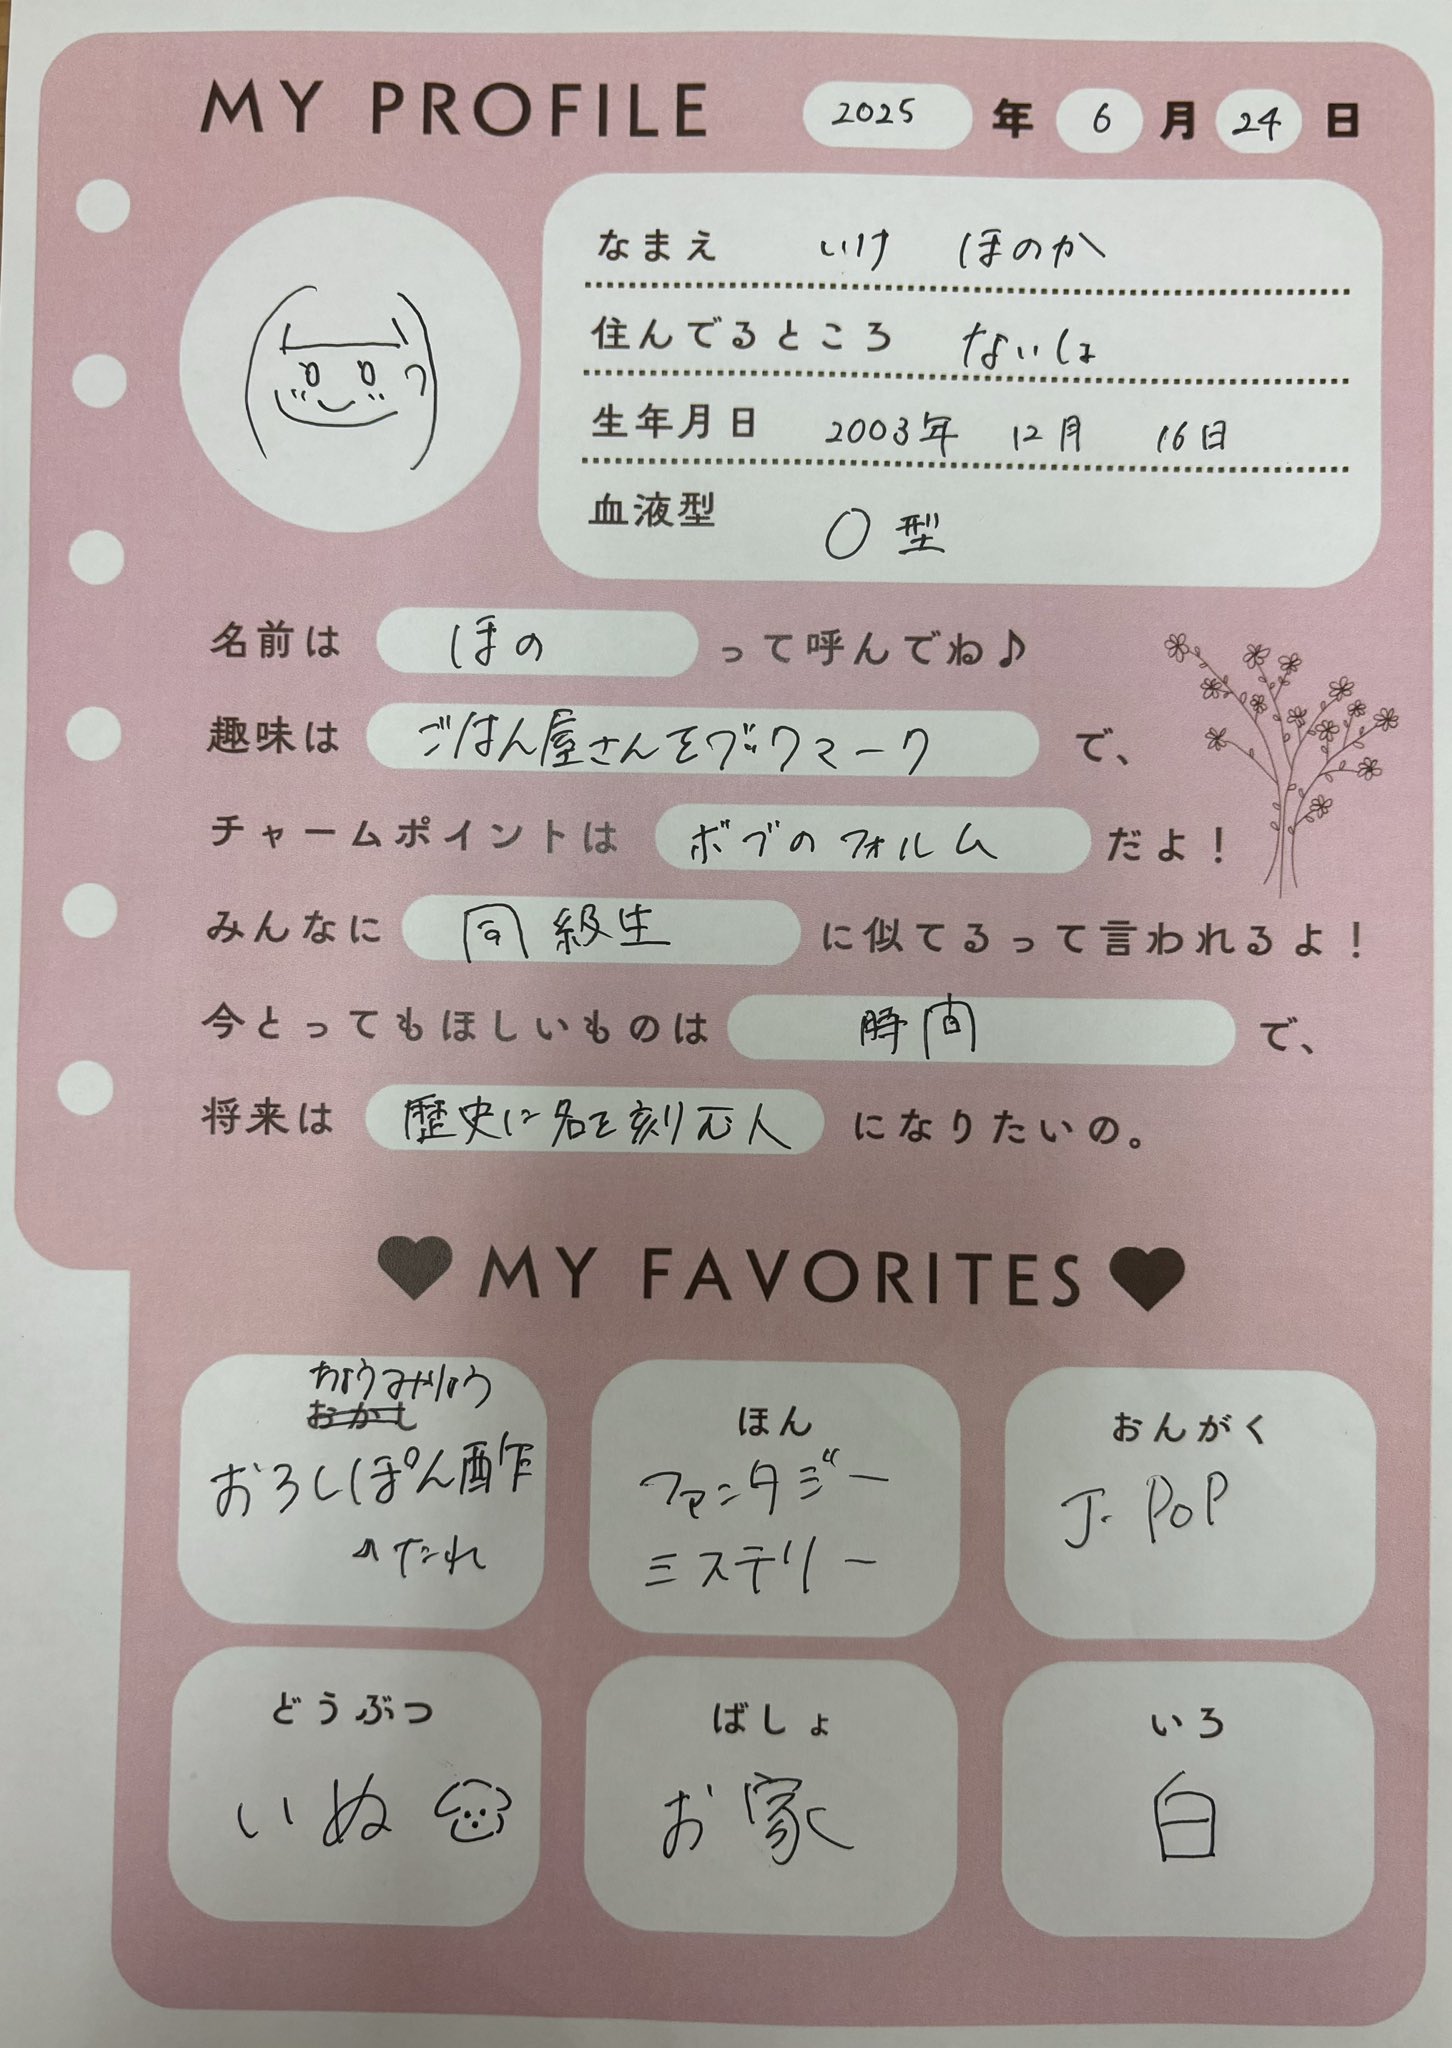 MY PROFILE 2025 年 6 月 24 日
なまえ いけ ほのか
住んでるところ ないしょ
生年月日 2003年 12月 16日
血液型 O型
名前は ほの って呼んでね♪
趣味は ごはん屋さんをブックマーク で、
チャームポイントは ボブのフォルム だよ！
みんなに 同級生 に似てるって言われるよ！
今とってもほしいものは 時間 で、
将来は 歴史に名を刻む人 になりたいの。
♥ MY FAVORITES ♥
ちょうみりょう
おかし
おろしぽん酢
↑たれ
ほん
ファンタジー
ミステリー
おんがく
J-POP
どうぶつ
いぬ
ばしょ
お家
いろ
白